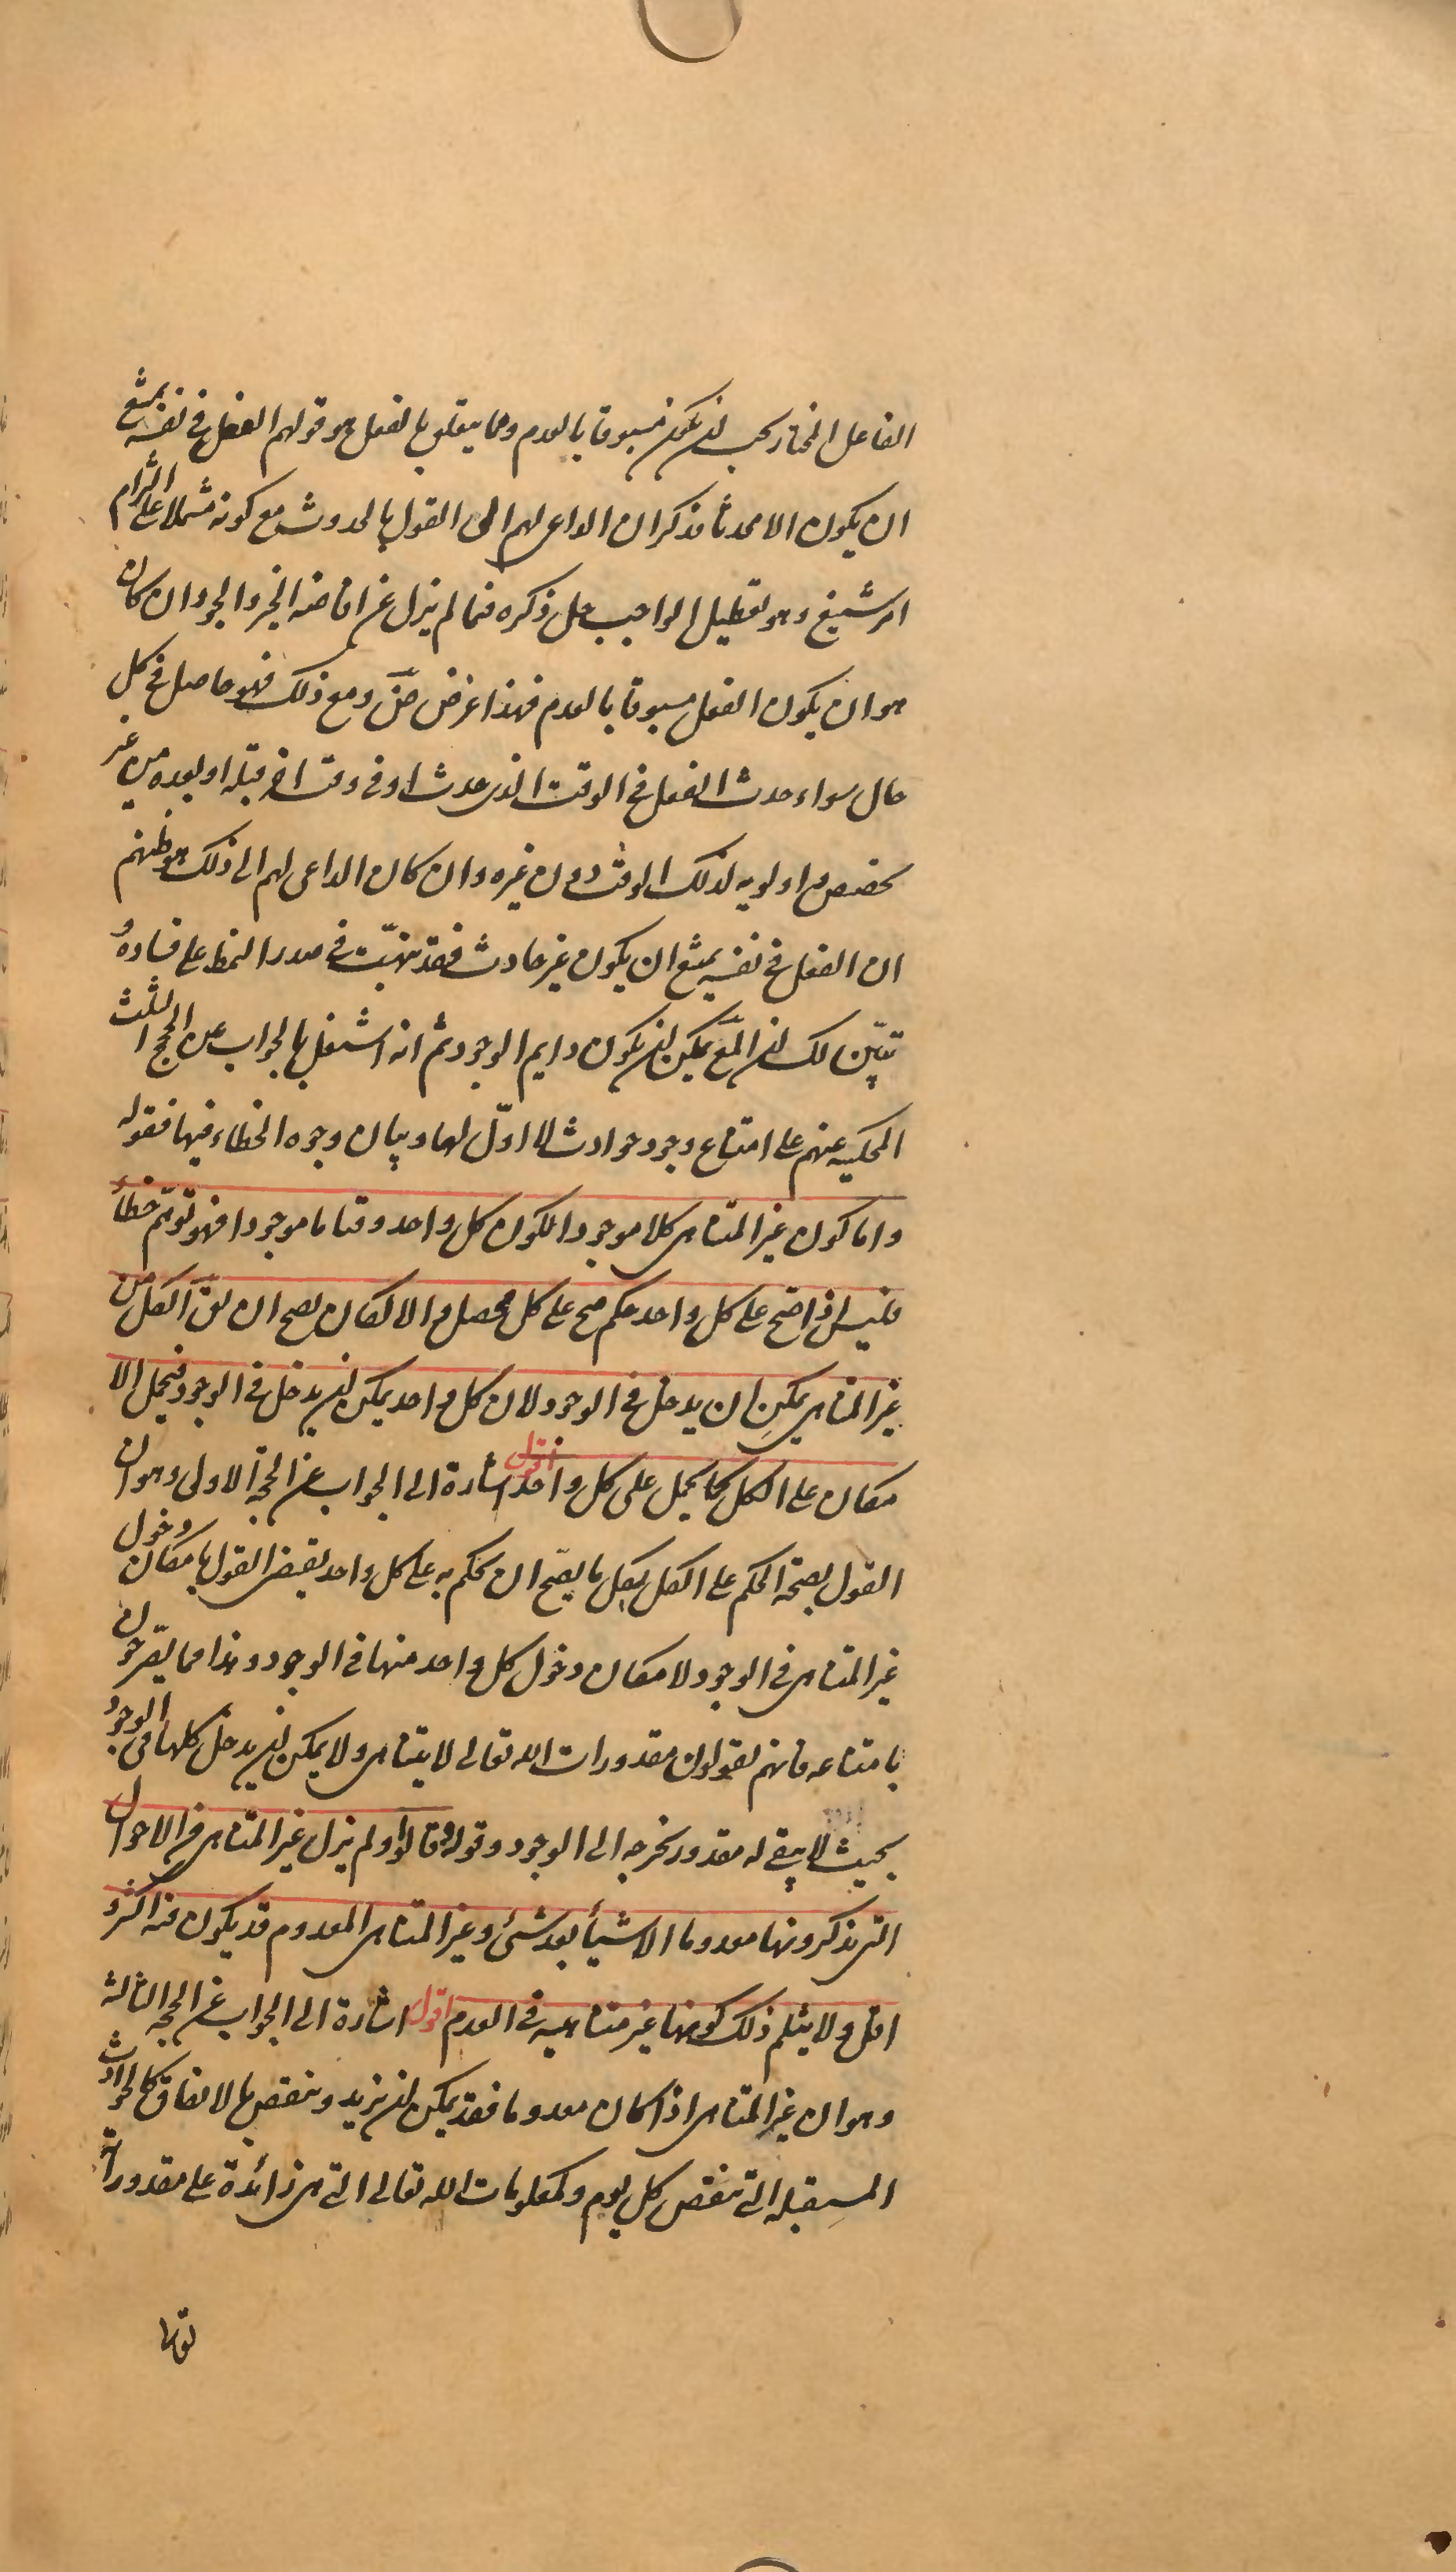 الفاعل المختار يجب ان يكون مسبوقا بالعدم وما يتعلق بالفعل هو قولهم الفعل في نفسه يمتنع
ان يكون الا محدثا فذكر ان الداعى لهم الى القول بالحدوث مع كونه مشتملا على التزام
امر شنيع وهو تعطيل الواجب جل ذكره فيما لم يزل عن افاضة الخير والجود ان كان
هو ان يكون الفعل مسبوقا بالعدم فهذا غرض ومع ذلك فهو حاصل في كل
حال سواء حدث الفعل في الوقت الذى حدث او في وقت اخر قبله او بعده من غير
تخصيص واولويه لذلك الوقت دون غيره وان كان الداعى لهم الى ذلك هو ظنهم
ان الفعل في نفسه يمتنع ان يكون غير حادث فقد نبهت في صدر النمط على فساده و
تبيّن لك ان يمكن ان يكون دايم الوجود ثم انه اشتغل بالجواب عن الحجج الثلث
المحكيه عنهم على امتناع وجود حوادث لا اوّل لها وبيان وجوه الخطاء فيها فقوله
واما كون غير المتناهى كلا موجودا لكون كل واحد وقتا ما موجودا فهو توهّم خطأ
فليس اذا صح على كل واحد حكم صح على كل محصل والا لكان يصح ان يقَ الكل من
غير المتناهى يمكن ان يدخل في الوجود لان كل واحد يمكن ان يدخل في الوجود فيحمل الا
مكان على الكل كما يحمل على كل واحد اقول اشارة الى الجواب عن الحجة الاولى وهو ان
القول بصحة الحكم على الكل بكل ما يصح ان يحكم به على كل واحد يقتضى القول بامكان دخول
غير المتناهى في الوجود لامكان دخول كل واحد منها في الوجود وهذا مما يصرّحون
بامتناعه فانهم يقولون مقدورات الله تعالى لا يتناهى ولا يمكن ان يدخل كلها في الوجود
بحيث لا يبقى له مقدور يخرجه الى الوجود وقوله قالوا ولم يزل غير المتناهى من الاحوال
التى يذكرونها معدوما الا شيأ بعد شئ وغير المتناهى المعدوم قد يكون فيه اكثر و
اقل ولا يثلم ذلك كونها غير متناهيه في العدم اقول اشارة الى الجواب عن الحجة الثالثة
وهو ان غير المتناهى اذا كان معدوما فقد يمكن ان يزيد وينقص بالاتفاق كالحوادث
المستقبله التى تنقص كل يوم وكمعلومات الله تعالى التى هى زائدة على مقدوراته